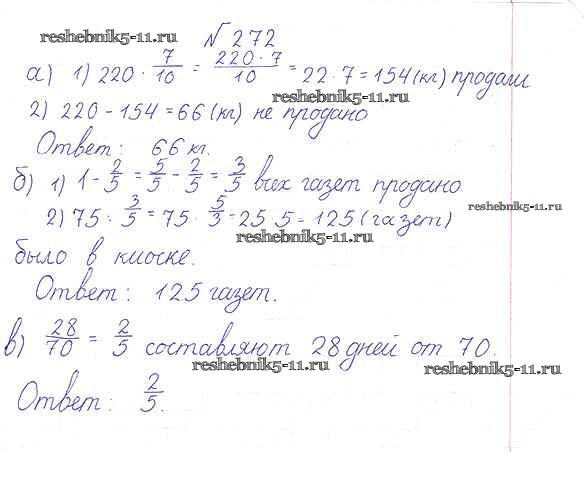 reshebnik5-11.ru
№ 272
а) 1) 220 · 7/10 = 220 · 7/10 = 22 · 7 = 154 (кг) продали
reshebnik5-11.ru
2) 220 - 154 = 66 (кг) не продано
Ответ: 66 кг.
б) 1) 1 - 2/5 = 5/5 - 2/5 = 3/5 всех газет продано
reshebnik5-11.ru
2) 75 : 3/5 = 75 · 5/3 = 25 · 5 = 125 (газет)
reshebnik5-11.ru
было в киоске.
Ответ: 125 газет.
в) 28/70 = 2/5 составляют 28 дней от 70.
reshebnik5-11.ru reshebnik5-11.ru
Ответ: 2/5.